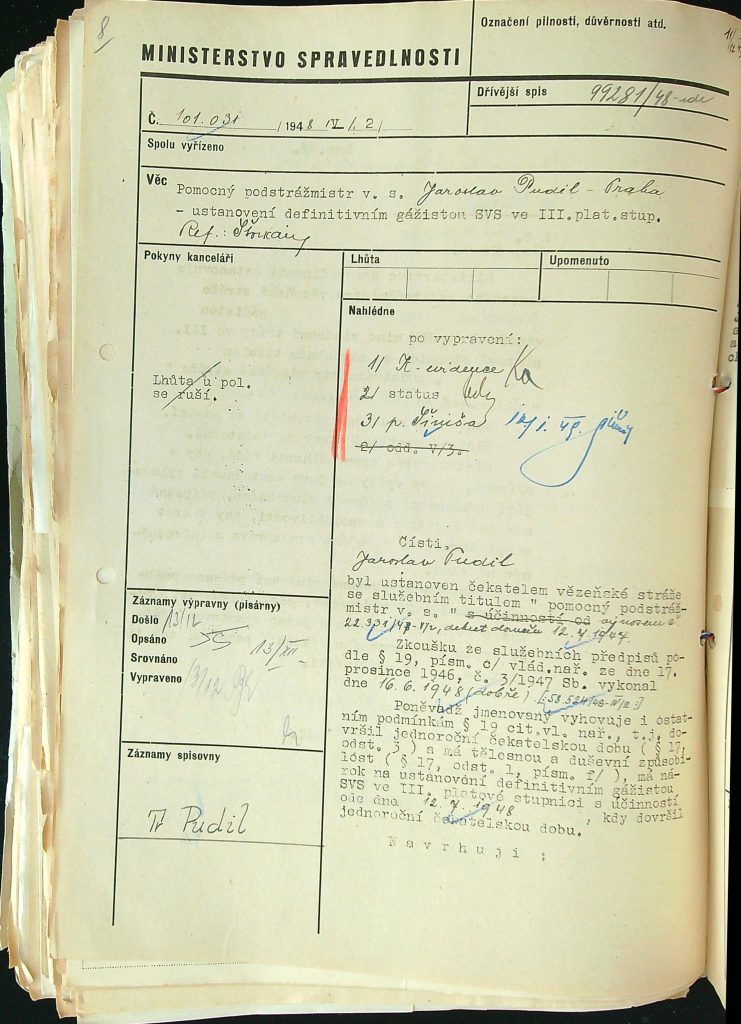 8
Označení pilnosti, důvěrnosti atd.
MINISTERSTVO SPRAVEDLNOSTI
Dřívější spis 99281/48-
Č. 101.031 /1948 IV/2/
Spolu vyřízeno
Věc Pomocný podstrážmistr v. s. Jaroslav Pudil - Praha
- ustanovení definitivním gážistou SVS ve III.plat.stup.
Ref.:
Pokyny kanceláři
Lhůta
Upomenuto
Nahlédne
po vypravení:
1/ K-evidence Ka
2/ status
3/ p.
2/ odd. V/3.
Lhůta u pol.
se ruší.
Části.
Jaroslav Pudil
byl ustanoven čekatelem vězeňské stráže
se služebním titulem " pomocný podstráž-
mistr v. s. " s účinností od výnosem č.
22.331/47-IV/2, dekret doručen 12.7.1947.
Zkoušku ze služebních předpisů po-
dle § 19, písm. c/ vlád.nař. ze dne 17.
prosince 1946, č. 3/1947 Sb. vykonal
dne 16.6.1948 (dobře). [:58.524/48-IV/2:]
Poněvadž jmenovaný vyhovuje i ostat-
ním podmínkám § 19 cit.vl. nař., t.j. do-
vršil jednoroční čekatelskou dobu ( § 17,
odst. 3 ) a má tělesnou a duševní způsobi-
lost ( § 17, odst. 1, písm. f/ ), má ná-
rok na ustanovení definitivním gážistou
SVS ve III. platové stupnici s účinností
ode dne 12.7.1948 , kdy dovršil
jednoroční čekatelskou dobu.
Navrhuji :
Záznamy výpravny (písárny)
Došlo 13/12
Opsáno 13/XII
Srovnáno
Vypraveno 13/12
Záznamy spisovny
Pudil